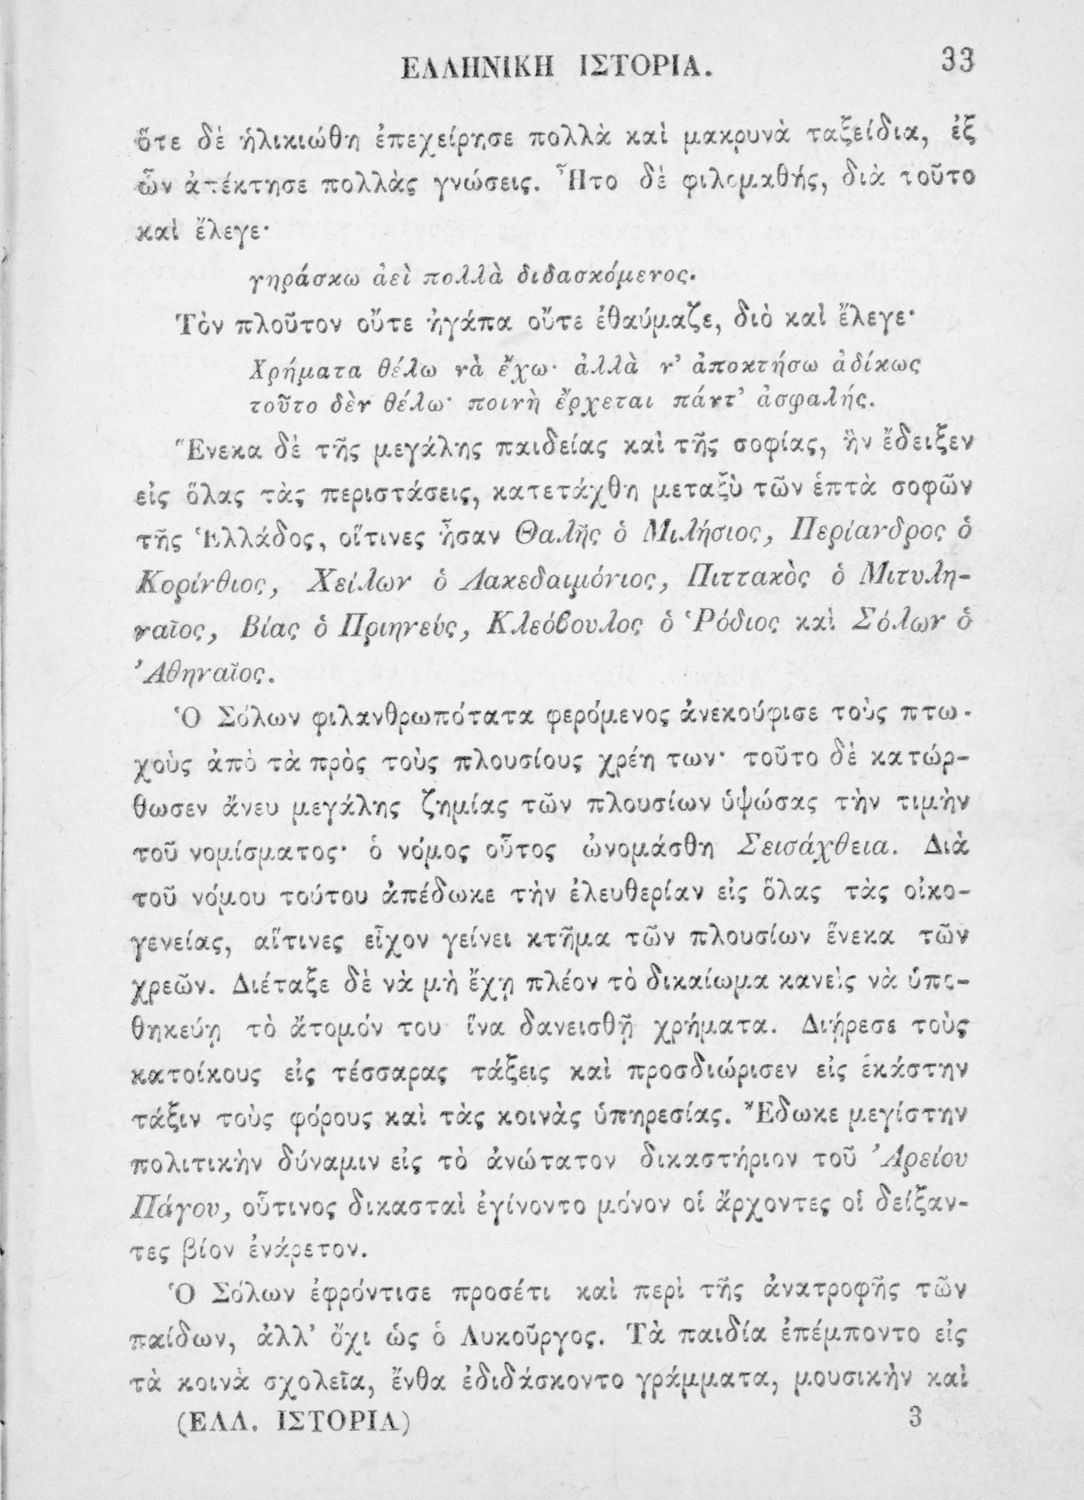 ΕΛΛΗΝΙΚΗ ΙΣΤΟΡΙΑ. 33
ὅτε δὲ ἡλικιώθη ἐπεχείρησε πολλὰ καὶ μακρυνὰ ταξείδια, ἐξ
ὧν ἀπέκτησε πολλὰς γνώσεις. Ἦτο δὲ φιλομαθής, διὰ τοῦτο
καὶ ἔλεγε·
γηράσκω ἀεὶ πολλὰ διδασκόμενος.
Τὸν πλοῦτον οὔτε ἠγάπα οὔτε ἐθαύμαζε, διὸ καὶ ἔλεγε·
Χρήματα θέλω νὰ ἔχω· ἀλλὰ ν' ἀποκτήσω ἀδίκως
τοῦτο δὲν θέλω· ποινὴ ἔρχεται πάντ' ἀσφαλής.
Ἕνεκα δὲ τῆς μεγάλης παιδείας καὶ τῆς σοφίας, ἣν ἔδειξεν
εἰς ὅλας τὰς περιστάσεις, κατετάχθη μεταξὺ τῶν ἑπτὰ σοφῶν
τῆς Ἑλλάδος, οἵτινες ἦσαν Θαλῆς ὁ Μιλήσιος, Περίανδρος ὁ
Κορίνθιος, Χείλων ὁ Λακεδαιμόνιος, Πιττακὸς ὁ Μιτυλη-
ναῖος, Βίας ὁ Πριηνεύς, Κλεόβουλος ὁ Ῥόδιος καὶ Σόλων ὁ
Ἀθηναῖος.
Ὁ Σόλων φιλανθρωπότατα φερόμενος ἀνεκούφισε τοὺς πτω-
χοὺς ἀπὸ τὰ πρὸς τοὺς πλουσίους χρέη των· τοῦτο δὲ κατώρ-
θωσεν ἄνευ μεγάλης ζημίας τῶν πλουσίων ὑψώσας τὴν τιμὴν
τοῦ νομίσματος· ὁ νόμος οὗτος ὠνομάσθη Σεισάχθεια. Διὰ
τοῦ νόμου τούτου ἀπέδωκε τὴν ἐλευθερίαν εἰς ὅλας τὰς οἰκο-
γενείας, αἵτινες εἶχον γείνει κτῆμα τῶν πλουσίων ἕνεκα τῶν
χρεῶν. Διέταξε δὲ νὰ μὴ ἔχῃ πλέον τὸ δικαίωμα κανεὶς νὰ ὑπο-
θηκεύῃ τὸ ἄτομόν του ἵνα δανεισθῇ χρήματα. Διῄρεσε τοὺς
κατοίκους εἰς τέσσαρας τάξεις καὶ προσδιώρισεν εἰς ἑκάστην
τάξιν τοὺς φόρους καὶ τὰς κοινὰς ὑπηρεσίας. Ἔδωκε μεγίστην
πολιτικὴν δύναμιν εἰς τὸ ἀνώτατον δικαστήριον τοῦ Ἀρείου
Πάγου, οὗτινος δικασταὶ ἐγίνοντο μόνον οἱ ἄρχοντες οἱ δείξαν-
τες βίον ἐνάρετον.
Ὁ Σόλων ἐφρόντισε προσέτι καὶ περὶ τῆς ἀνατροφῆς τῶν
παίδων, ἀλλ' ὄχι ὡς ὁ Λυκοῦργος. Τὰ παιδία ἐπέμποντο εἰς
τὰ κοινὰ σχολεῖα, ἔνθα ἐδιδάσκοντο γράμματα, μουσικὴν καὶ
(ΕΛΛ. ΙΣΤΟΡΙΑ) 3